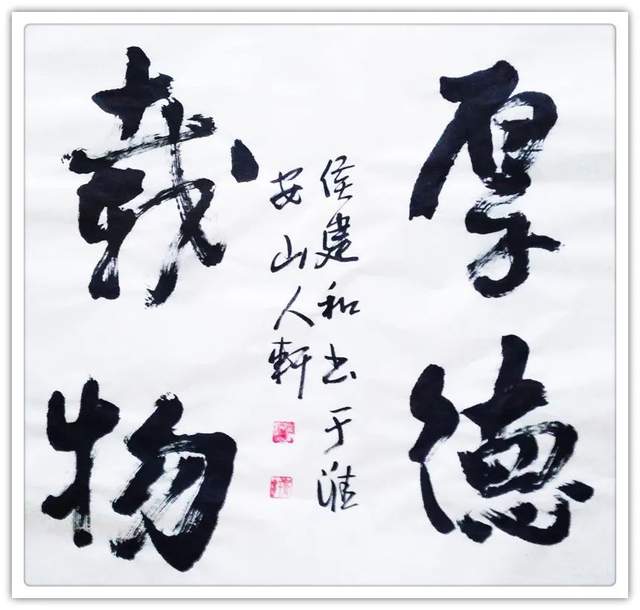 厚德
载物
侯建和书于淮
安山人轩